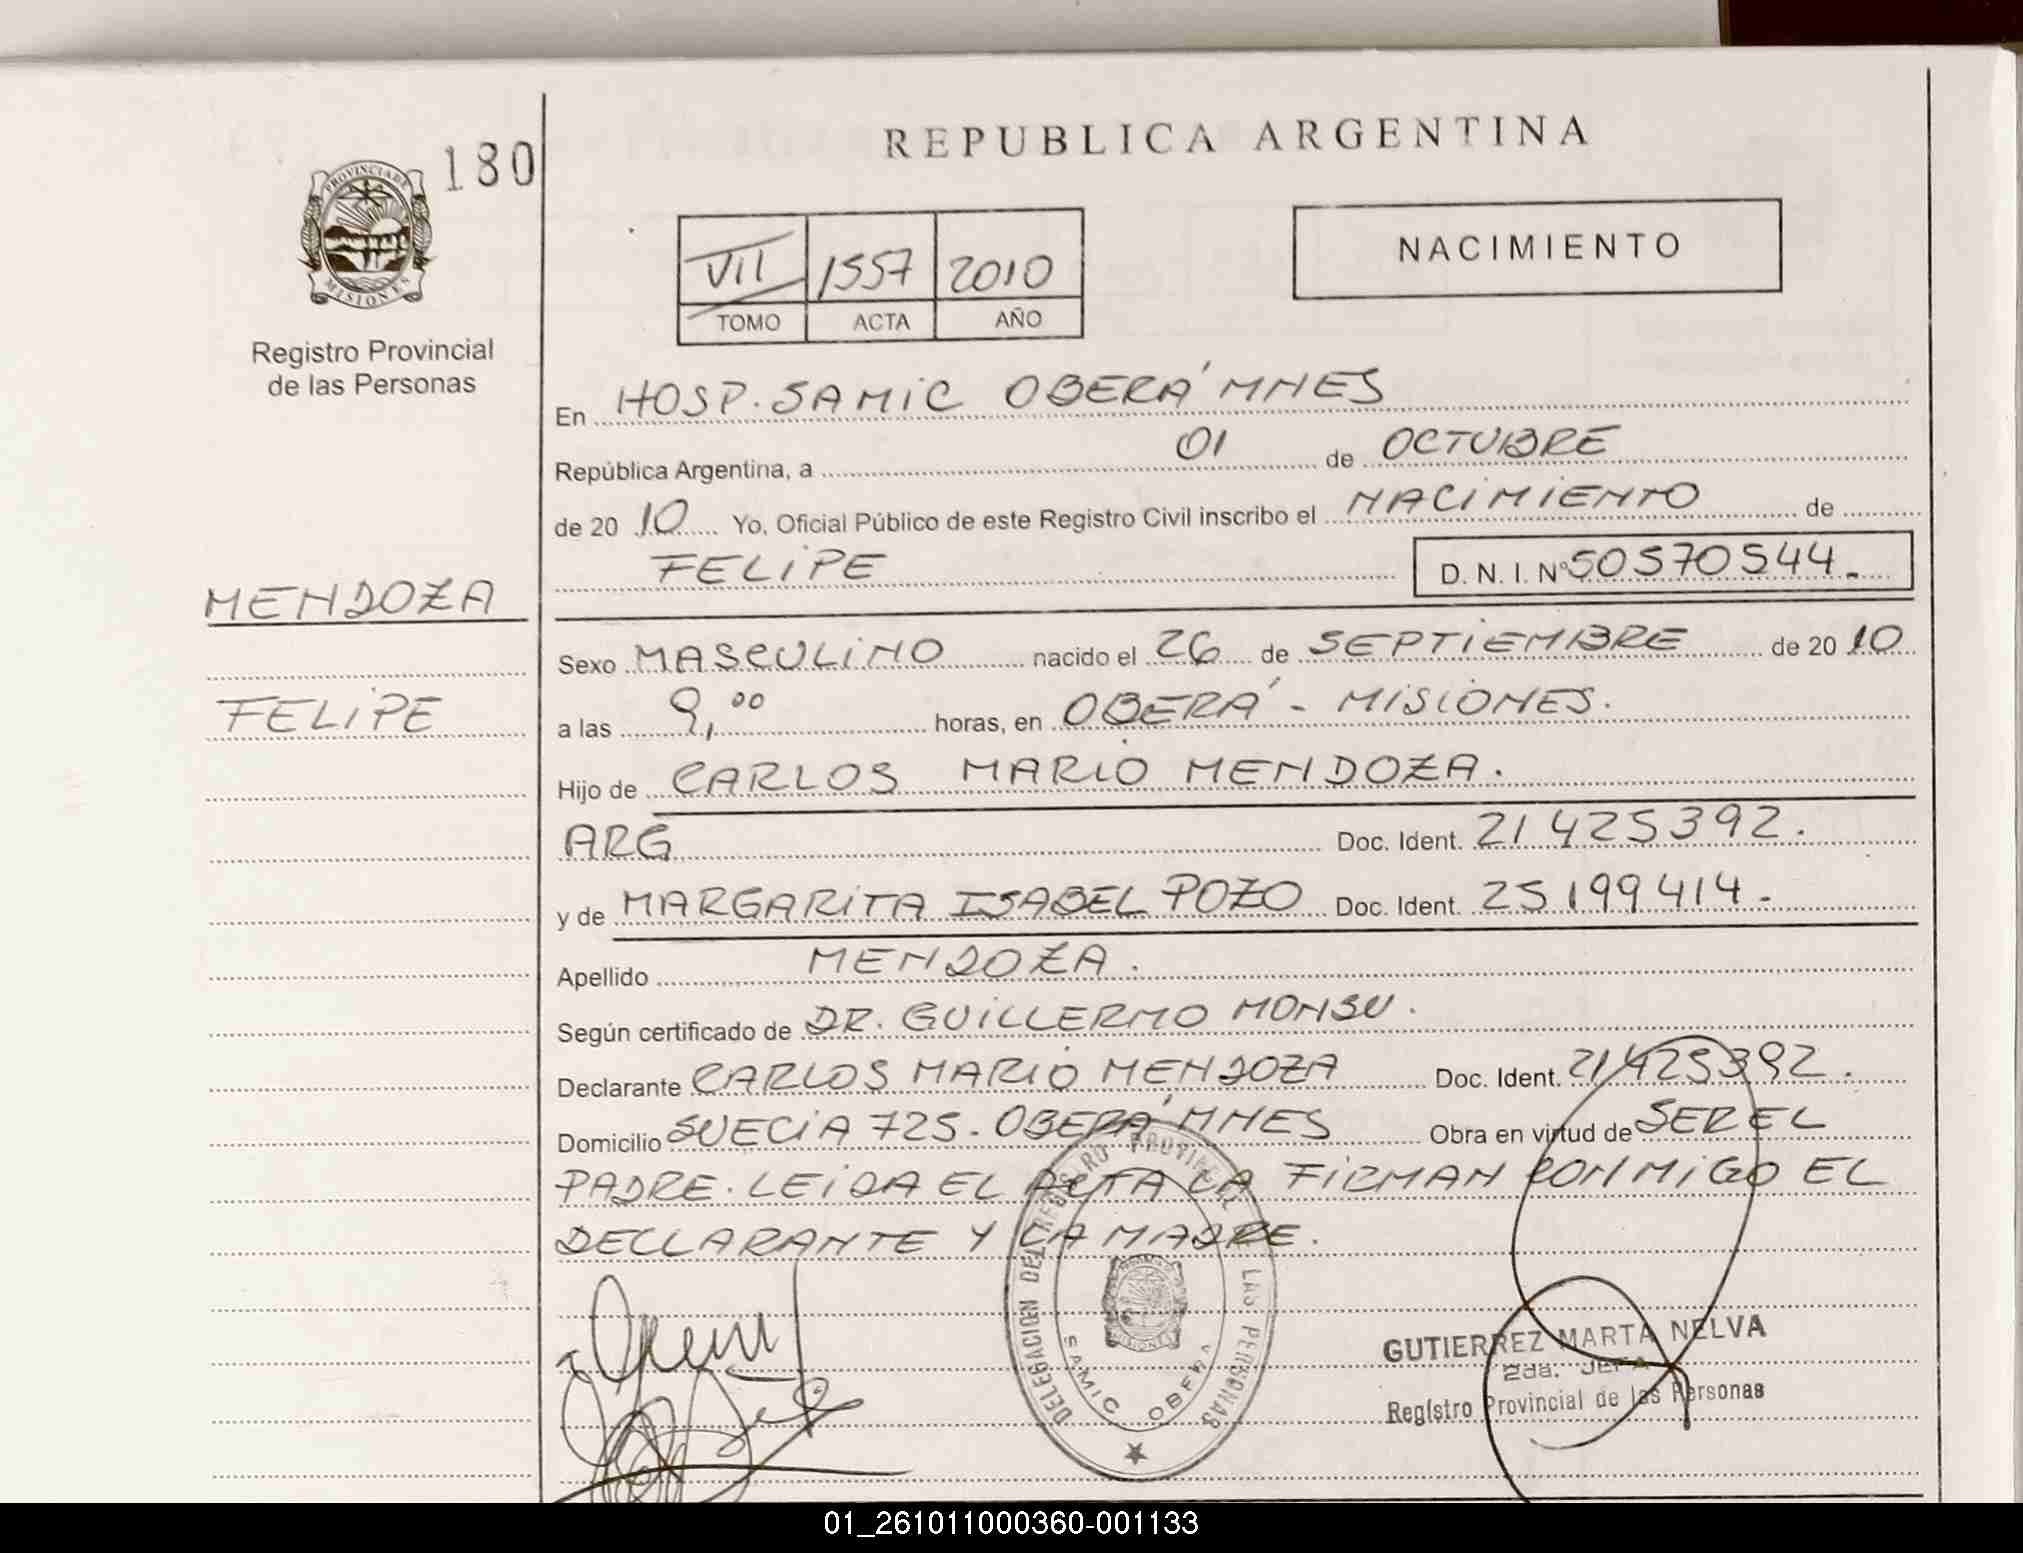 180
PROVINCIA DE
MISIONES
Registro Provincial
de las Personas
MENDOZA
FELIPE
REPUBLICA ARGENTINA
VII 1557 2010
TOMO ACTA AÑO
NACIMIENTO
En HOSP. SAMIC OBERÁ MNES
República Argentina, a 01 de OCTUBRE
de 2010 Yo, Oficial Público de este Registro Civil inscribo el NACIMIENTO de
FELIPE D. N. I. Nº 50570544.
Sexo MASCULINO nacido el 26 de SEPTIEMBRE de 2010
a las 9,00 horas, en OBERÁ - MISIONES.
Hijo de CARLOS MARIO MENDOZA.
ARG Doc. Ident. 21425392.
y de MARGARITA ISABEL POZO Doc. Ident. 25199414.
Apellido MENDOZA.
Según certificado de DR. GUILLERMO MONSU.
Declarante CARLOS MARIO MENDOZA Doc. Ident. 21425392.
Domicilio SUECIA 725. OBERÁ MNES Obra en virtud de SER EL
PADRE. LEIDA EL ACTA LA FIRMAN CONMIGO EL
DECLARANTE Y LA MADRE.
DELEGACION DEL REGISTRO PROVINCIAL DE LAS PERSONAS
SAMIC OBERA
GUTIERREZ MARTA NELVA
2da. JEFA
Registro Provincial de las Personas
01_261011000360-001133